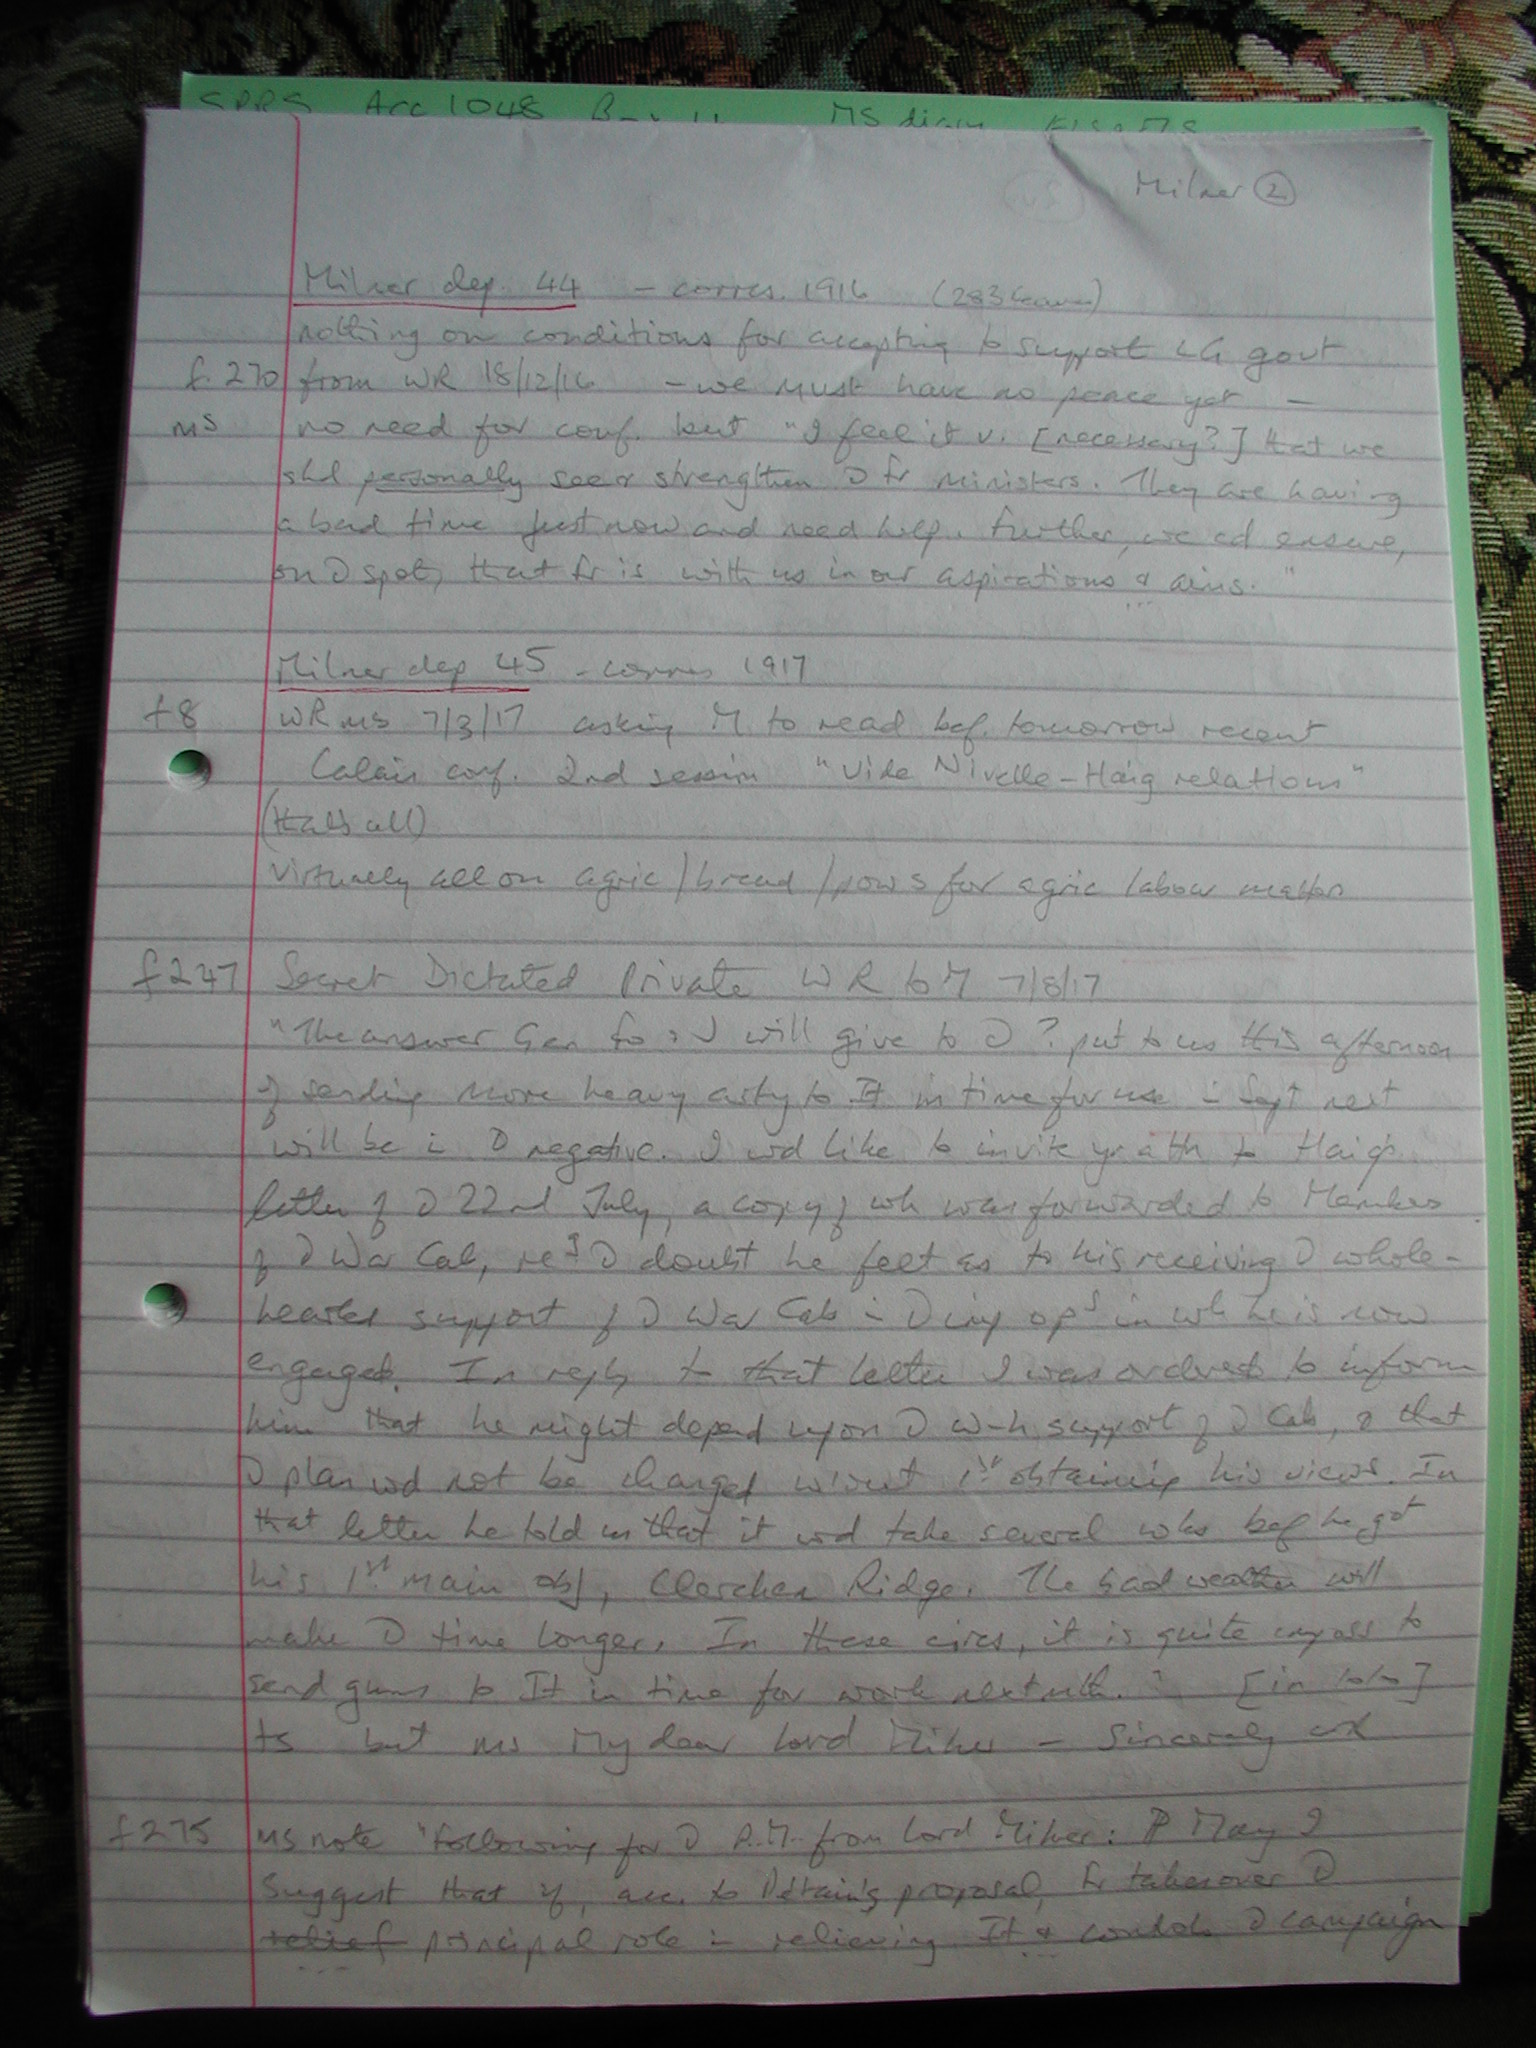 Acc 1048 MS diary
Milner ②
Milner dep. 44 – corres. 1916 (283 leaves)
nothing on conditions for accepting to support LG govt
f. 270 from WR 18/12/16 – we must have no peace yet –
MS no need for conf. but "I feel it v. [necessary?] that we
shd personally see & strengthen Ↄ Fr ministers. They are having
a bad time just now and need help. Further, we cd ensure,
on Ↄ spot, that Fr is with us in our aspirations & aims."
Milner dep 45 – corres 1917
f8 WR MS 7/3/17 asking M to read bef. tomorrow recent
Calais conf. 2nd session "vide Nivelle–Haig relations"
(that's all)
Virtually all on agric/bread/pows for agric labour matters
f247 Secret Dictated Private WR to M 7/8/17
"The answer Gen Fo: & I will give to Ↄ ? put to us this afternoon
of sending more heavy arty to It in time for use in Sept next
will be in Ↄ negative. I wd like to invite yr attn to Haig's
letter of Ↄ 22nd July, a copy of wh was forwarded to Members
of Ↄ War Cab, re Ↄ doubt he felt as to his receiving Ↄ whole-
hearted support of Ↄ War Cab in Ↄ imp ops in wh he is now
engaged. In reply to that letter I was ordered to inform
him that he might depend upon Ↄ w-h support of Ↄ Cab, & that
Ↄ plan wd not be changed w'out 1st obtaining his views. In
that letter he told us that it wd take several wks bef he got
his 1st main obj, Clercken Ridge. The bad weather will
make Ↄ time longer. In these circs, it is quite imposs to
send guns to It in time for work next mth." [in toto]
ts but MS My dear Lord Milner – Sincerely WR
f275 MS note "Following for Ↄ P.M. from Lord Milner: May I
suggest that if, acc. to Pétain's proposal, Fr takes over Ↄ
relief principal role in relieving It & controls Ↄ campaign